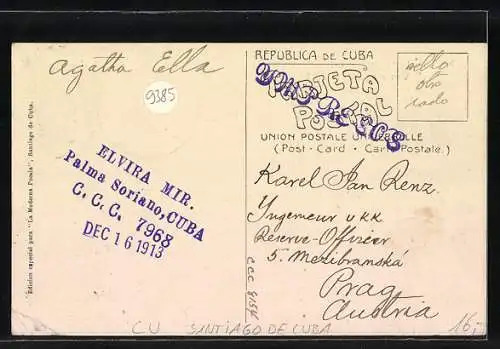 Agatha Ella
9385
ELVIRA MIR.
Palma Soriano, CUBA
C. C. C. 7968
DEC 16 1913
Edición especial para "La Moderna Poesía", Santiago de Cuba.
REPUBLICA DE CUBA
TARJETA
POSTAL
IMPRESOS
UNION POSTALE UNIVERSELLE
(Post-Card • Carte Postale.)
sello
otro
lado
Karel Jan Renz.
Ingenieur u k k
Reserve-Officier
5. Mezibranská
Prag
Austria
CCC 8154
CU SANTIAGO DE CUBA
16,-